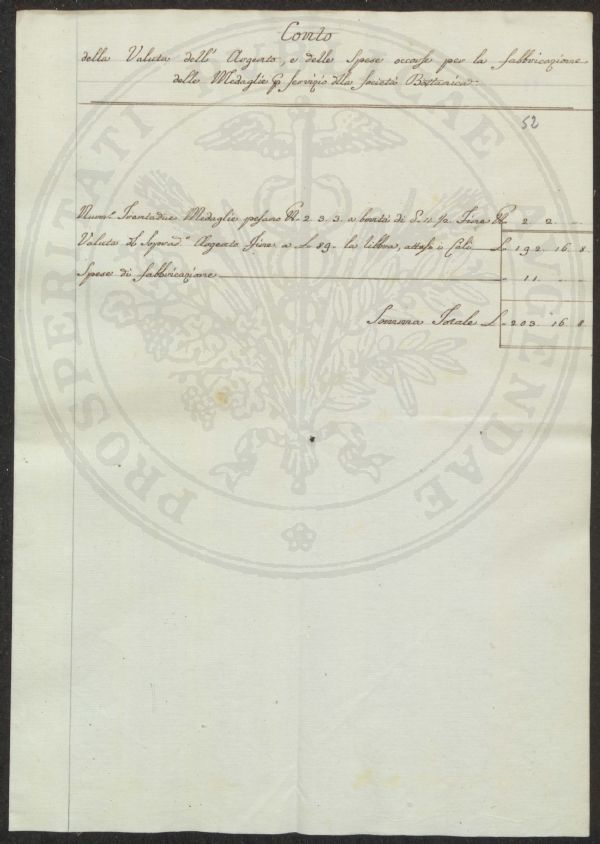 Conto
della Valuta dell' Argento, e delle Spese occorse per la fabbricazione
delle Medaglie per servizio della Società Bottanica.
52
Num.° Trentadue Medaglie pesano lb. 2. 3. 3. a bontà di 11 ½ Fine lb. 2. 2. -
Valuta di Soprad.° Argento Fine a L. 89. la libbra, atteso il Calo L. 192. 16. 8
Spese di fabbricazione 11. - -
Somma Totale L. 203. 16. 8.
PROSPERITATI PUBLICAE AUGENDAE